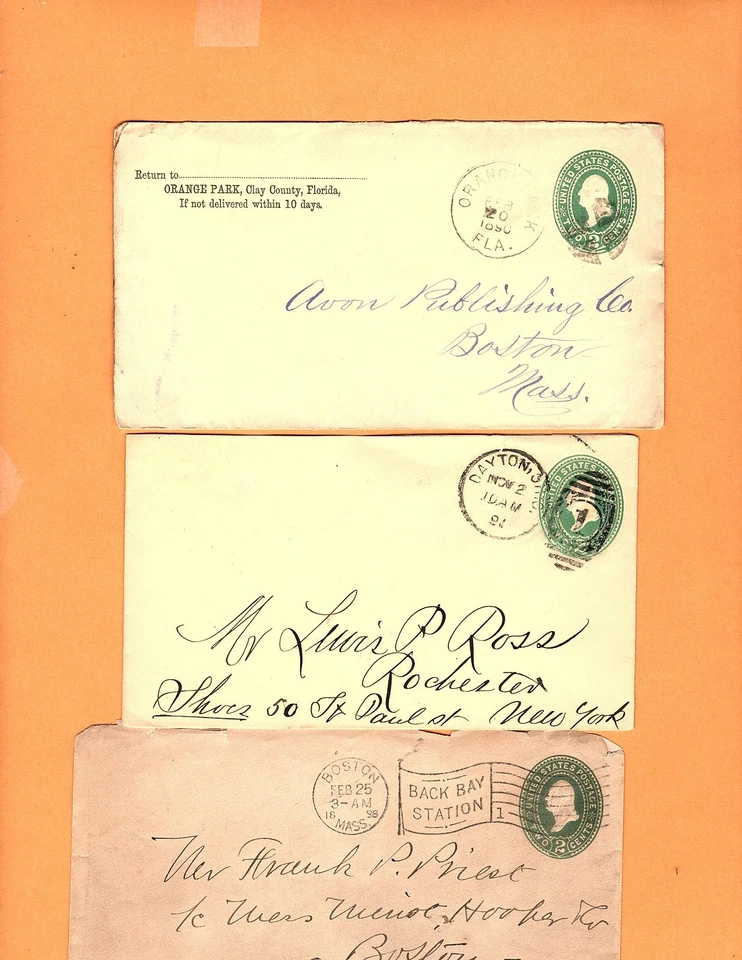 Return to
ORANGE PARK, Clay County, Florida,
If not delivered within 10 days.
ORANGE PARK
FEB
20
1890
FLA.
UNITED STATES POSTAGE
TWO 2 CENTS
Avon Publishing Co.
Boston
Mass.
DAYTON,
NOV 2
10 AM
91
UNITED STATES
Mr Lewis P Ross
Rochester
Shoes 50 St Paul st New York
BOSTON
FEB 25
3-AM
18 98
MASS.
BACK BAY
STATION
1
UNITED STATES POSTAGE
TWO 2 CENTS
Mr Frank P. Priest
Boston